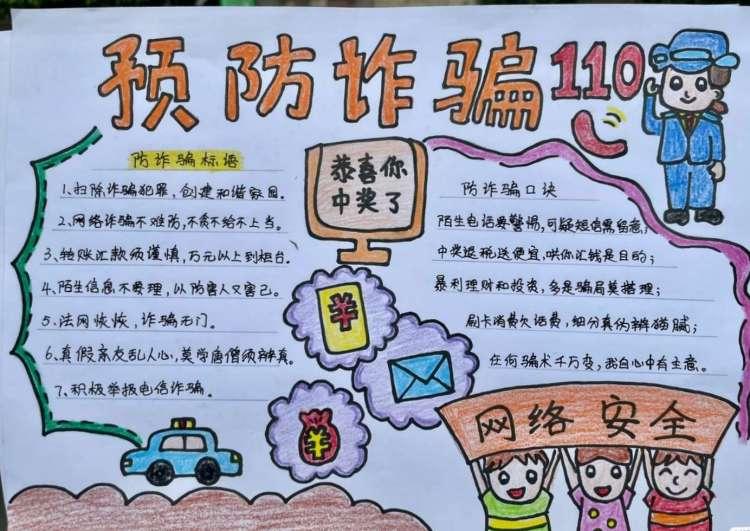 预防诈骗110
防诈骗标语
1、扫除诈骗犯罪，创建和谐家园。
2、网络诈骗不难防，不贪不给不上当。
3、转账汇款须谨慎，万元以上到柜台。
4、陌生信息不要理，以防害人又害己。
5、法网恢恢，诈骗无门。
6、真假亲友乱人心，莫学唐僧须辨真。
7、积极举报电信诈骗。
恭喜你
中奖了
防诈骗口诀
陌生电话要警惕，可疑短信需留意；
中奖退税送便宜，哄你汇钱是目的；
暴利理财和投资，多是骗局莫搭理；
刷卡消费欠话费，细分真伪辨猫腻；
任何骗术千万变，我自心中有主意。
¥
¥
网络安全